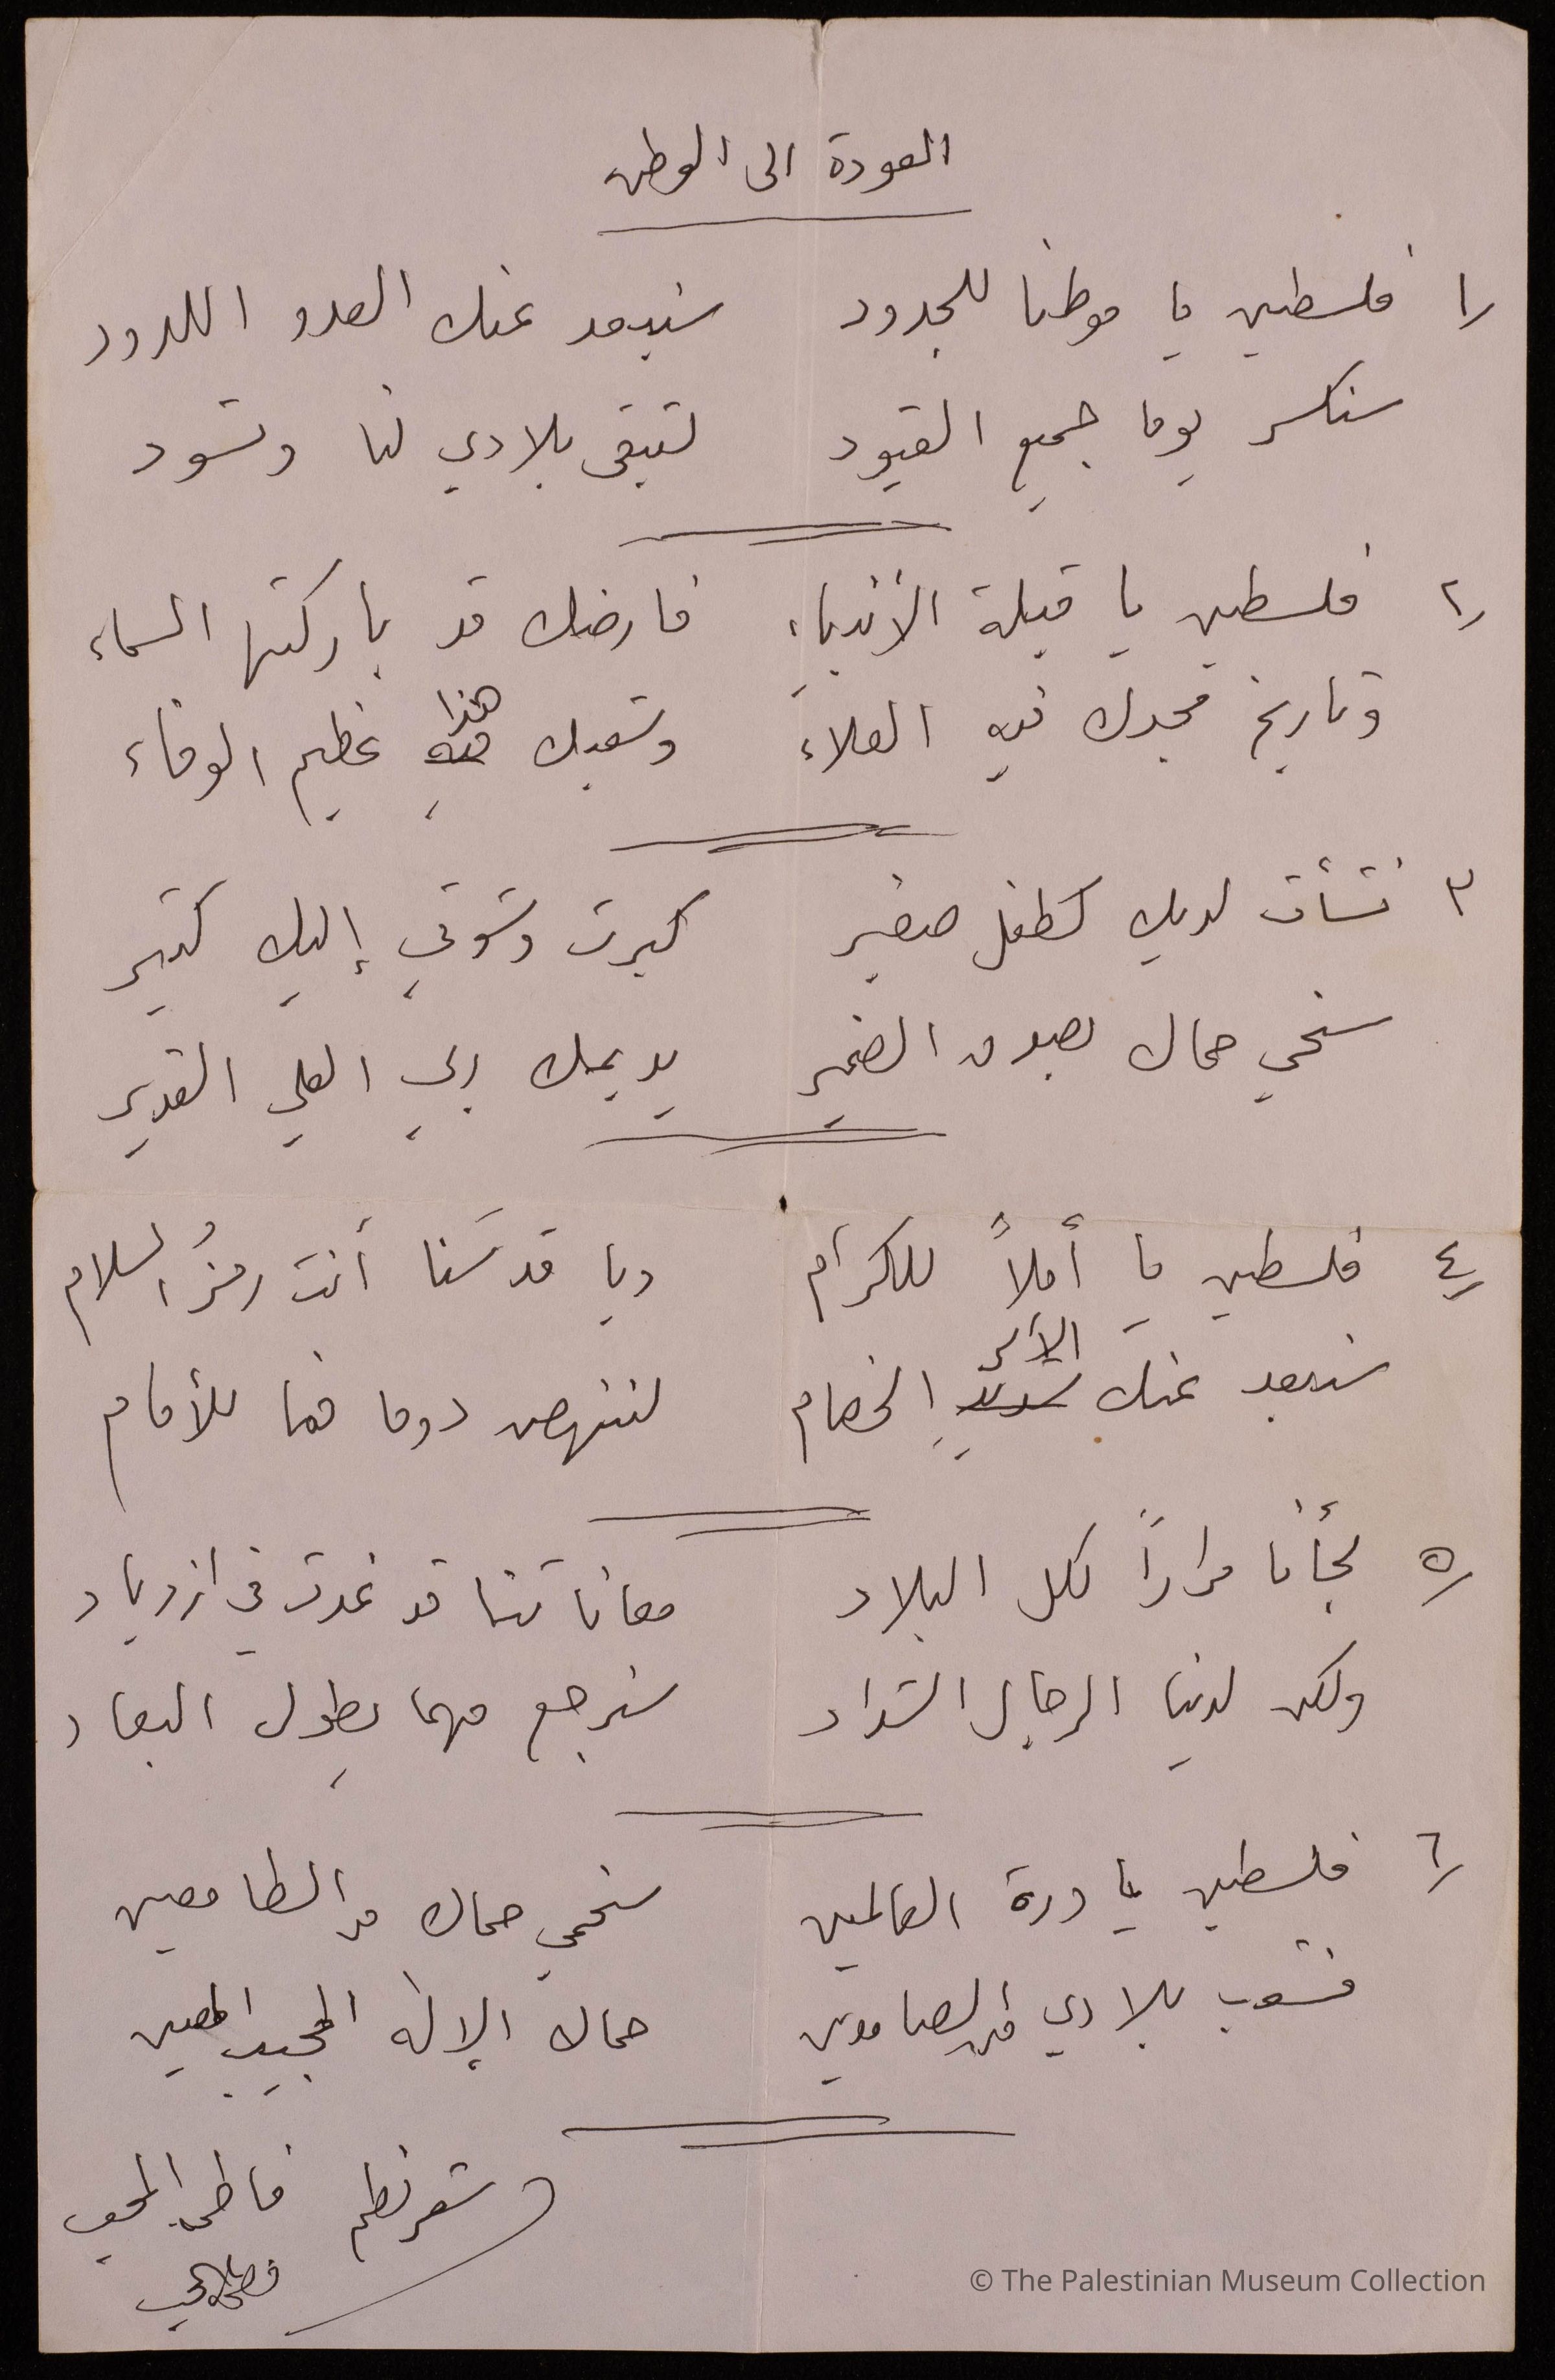 العودة الى الوطن
١/ فلسطين يا موطنا للجدود سنبعد عنك العدو اللدود
سنكسر يوما جميع القيود لتبقى بلادي لنا وتسود
٢/ فلسطين يا قبلة الأنبياء فارضك قد باركتها السماء
وتاريخ مجدك فيه العلاء وشعبك هذا عظيم الوفاء
٣ نشأت لديك كطفل صغير كبرت وشوقي إليك كثير
سنحمي حماك بصدق الضمير يديمك ربي العلي القدير
٤/ فلسطين يا أملاً للكرام ويا قدسَنا أنت رمزُ السلام
سنبعد عنك الألد الخصام لننهض دوما هنا للأمام
٥/ لجأنا مراراً لكل البلاد معاناتنا قد غدت في ازدياد
ولكن لدينا الرجال الشداد سنرجع مهما يطول البعاد
٦/ فلسطين يا درة العالمين سنحمي حماك من الطامعين
فشعب بلادي من الصامدين حماك الإله المجيب المعين
شعر نظم فاطمة المحب
© The Palestinian Museum Collection